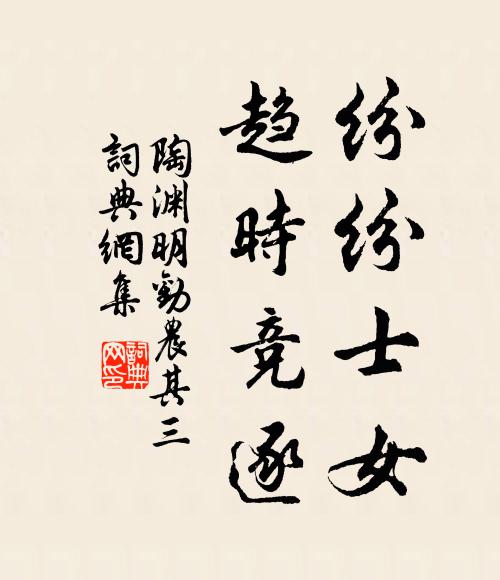 纷纷士女
趋時竞逐
陶渊明勸農其三
詞典網集
詞典
网印